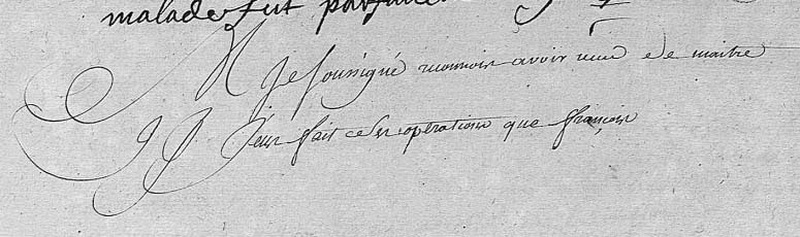 malade fut parfaite
Je soussigné reconnois avoir reçu de maitre
fait ces opérations que françois